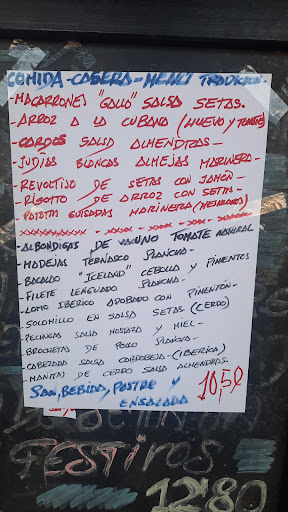 COMIDA-CASERA-MENÚ TRADICION.
-MACARRONES "GALLO" SALSA SETAS.
-ARROZ A LA CUBANA (HUEVO Y TOMATE)
-CARDOS SALSA ALMENDRAS-
-JUDIAS BLANCAS ALMEJAS MARINERA-
-REVOLTIJO DE SETAS CON JAMÓN-
-RISOTTO DE ARROZ CON SETAS-
-PATATAS GUISADAS MARINERA
-ALBONDIGAS DE VACUNO TOMATE NATURAL
-MADEJAS TERNASCO PLANCHA-
-BACALAO "ICELAND" CEBOLLA Y PIMIENTOS
-FILETE LENGUADO PLANCHA-
-LOMO IBERICO ADOBADO CON PIMENTÓN-
-SOLOMILLO EN SALSA SETAS (CERDO)
-PECHUGAS SALSA MOSTAZA Y MIEL-
-BROCHETAS DE POLLO PLANCHA-
-CABEZADA SALSA CORDOBESA-(IBERICA)
-MANITAS DE CERDO SALSA ALMENDRAS.
PAN, BEBIDA, POSTRE Y ENSALADA
10,50
FESTIVOS
12'80